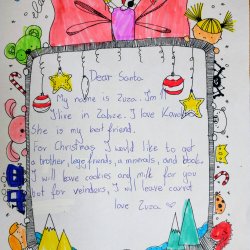 Dear Santa
My name is Zuza. I'm 11
I live in Zabrze. I love
She is my best friend.
For Christmas I would like to get
a brother, lego friends, a minerals, and book.
I will leave cookies and milk for you
but for reinders, I will leave carrot
love Zuza